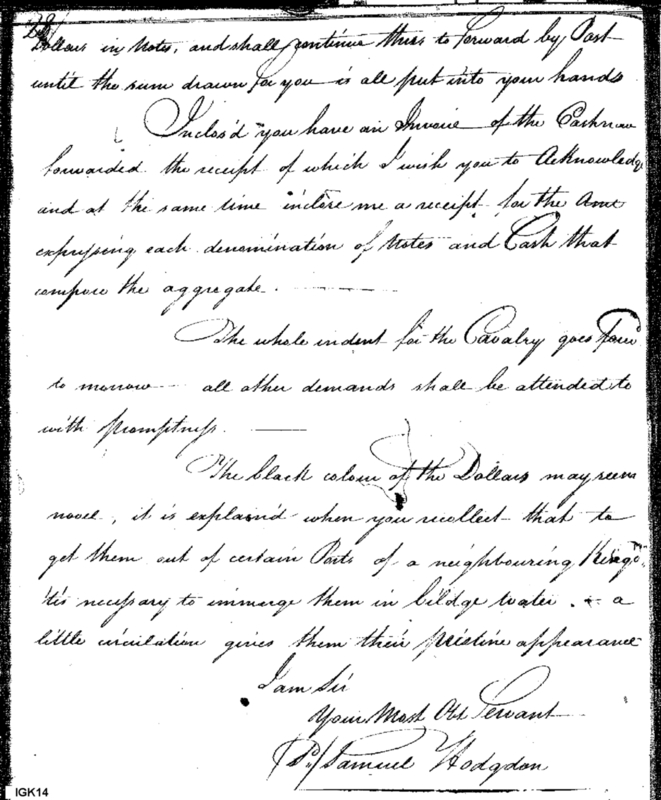 28/
Dollars in Notes, and shall continue thus to forward by Post
until the sum drawn for you is all put into your hands
Inclos'd you have an Invoice of the Cash now
forwarded the receipt of which I wish you to Acknowledge
and at the same time inclose me a receipt for the Amt
expressing each denomination of Notes and Cash that
compose the aggregate.
The whole indent for the Cavalry goes
to morrow all other demands shall be attended to
with promptness.
The black colour of the Dollars may seem
novel, it is explain'd when you recollect that to
get them out of certain Ports of a neighbouring
'tis necessary to immerge them in bildge water. a
little circulation gives them their pristine appearance
I am Sir
Your Most Obt Servant
Samuel Hodgdon
IGK14